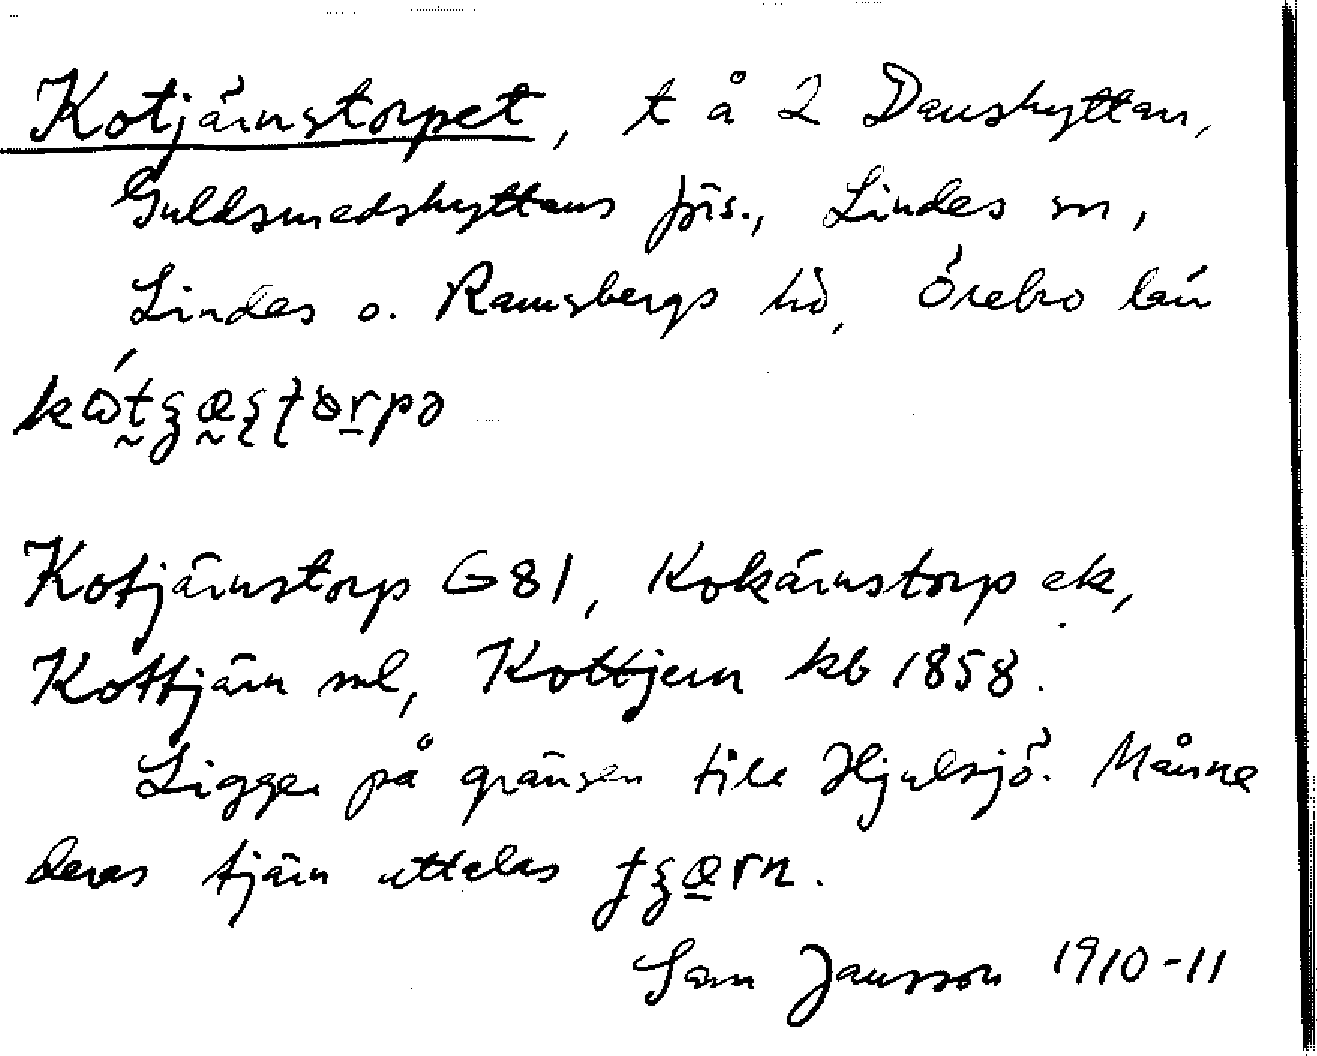 Kotjärnstorpet, t å 2 Danshyttan,
Guldsmedshyttans jbs., Lindes sn,
Lindes o. Ramsbergs hd, Örebro län
Kotjärnstorp G81, Kokärnstorp ek,
Kottjärn ml, Kottjern kb 1858.
Ligger på gränsen till Hjulsjö. Månne
deras tjärn uttalas
Sam Jansson 1910-11